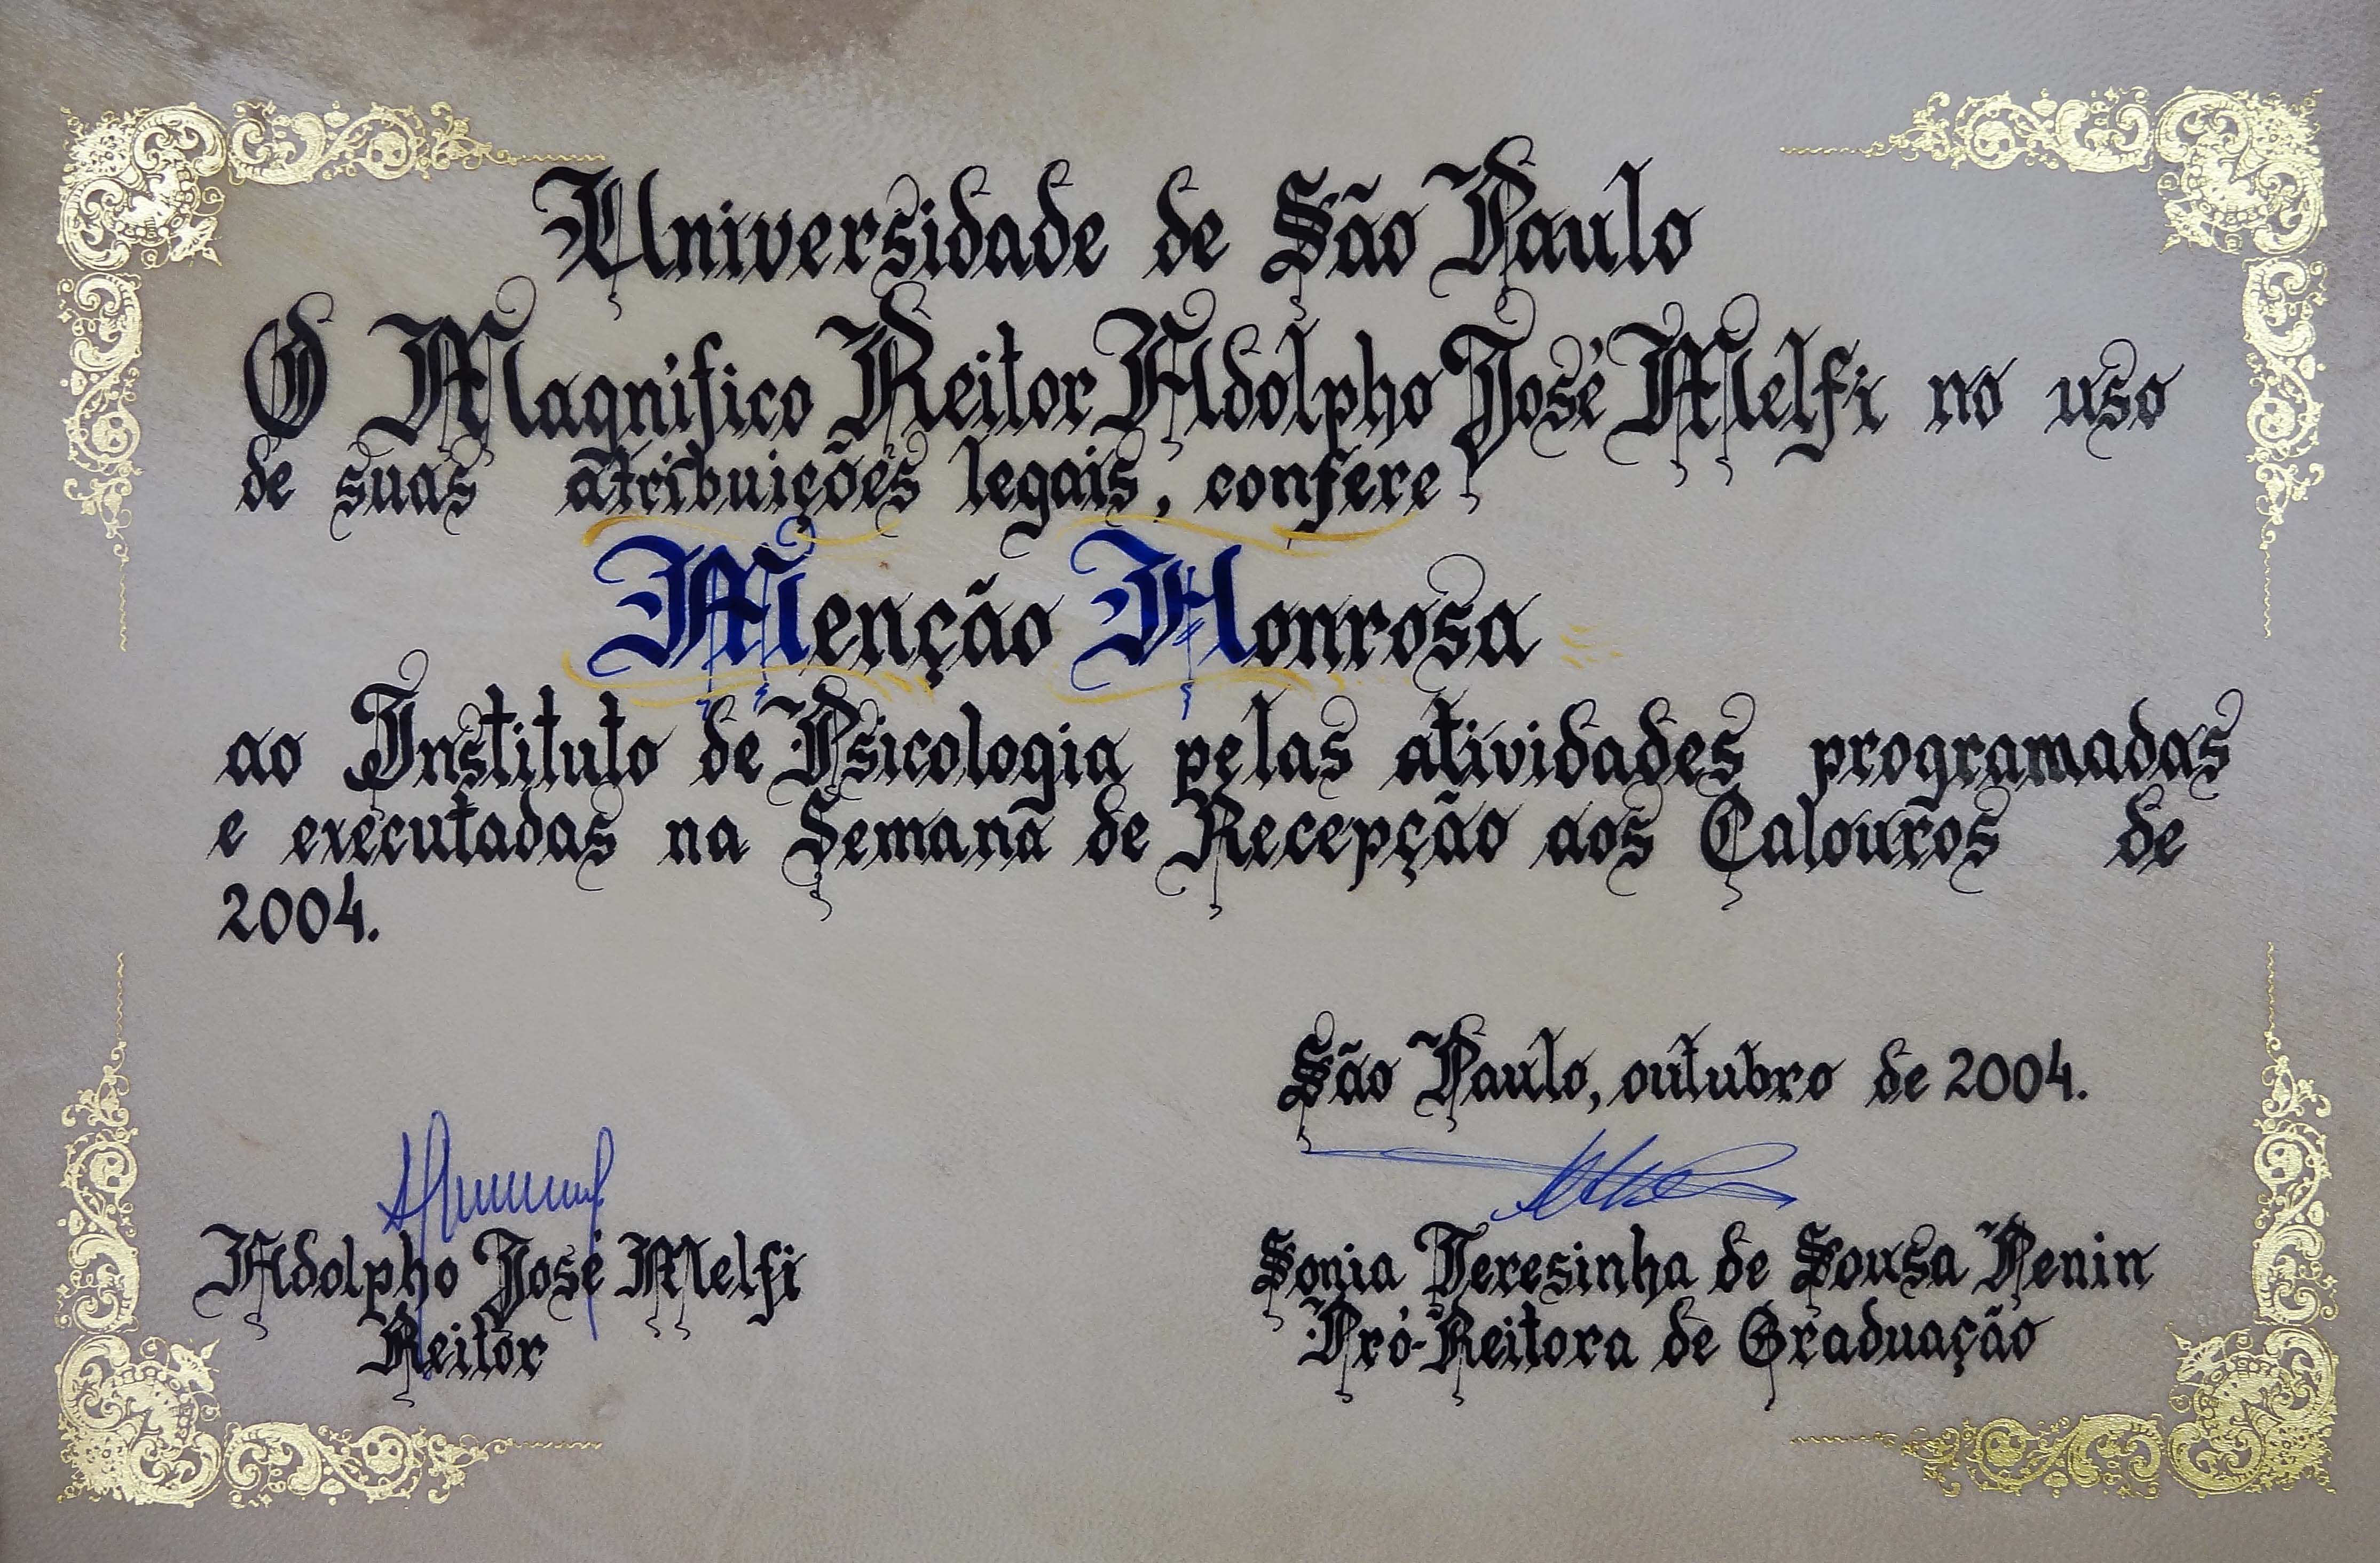 Universidade de São Paulo
O Magnífico Reitor Adolpho José Melfi no uso
de suas atribuições legais, confere
Menção Honrosa
ao Instituto de Psicologia pelas atividades programadas
e executadas na Semana de Recepção aos Calouros de
2004.
São Paulo, outubro de 2004.
Adolpho José Melfi
Reitor
Sonia Teresinha de Sousa Penin
Pró-Reitora de Graduação